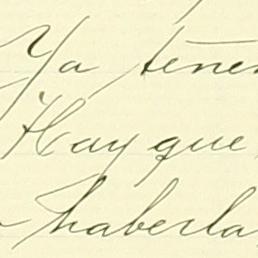 Ya tene
Hay que
haberla